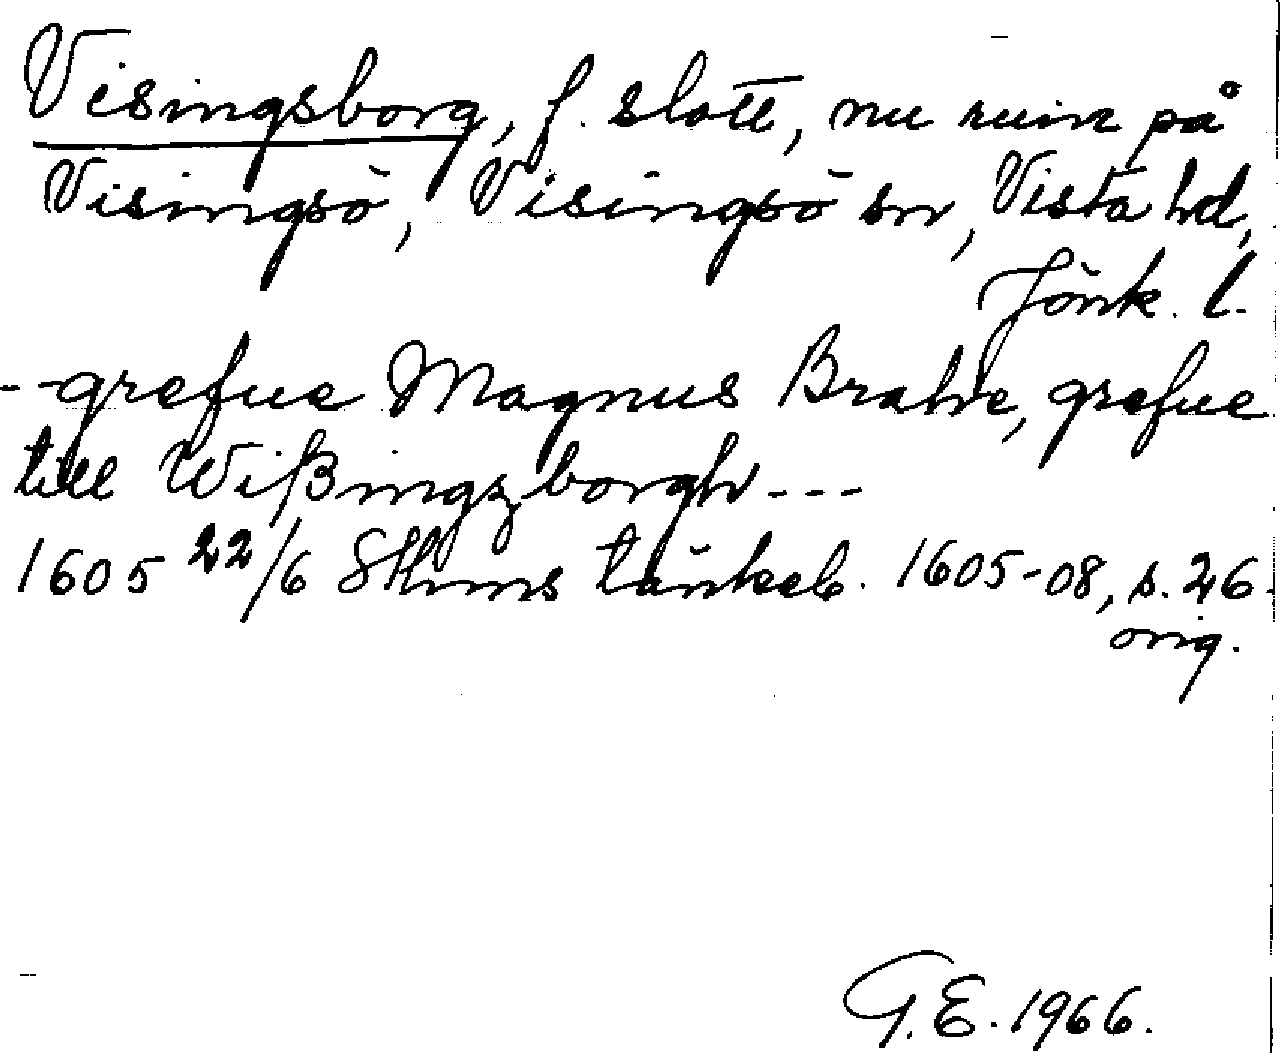 Visingsborg, f. slott, nu ruin på
Visingsö, Visingsö sn, Vista hd,
Jönk. l.
- - grefue Magnus Brahe, grefue
till Wißingzborgh - - -
1605 22/6 Sthms tänkeb. 1605-08, s. 26.
orig.
G.E. 1966.